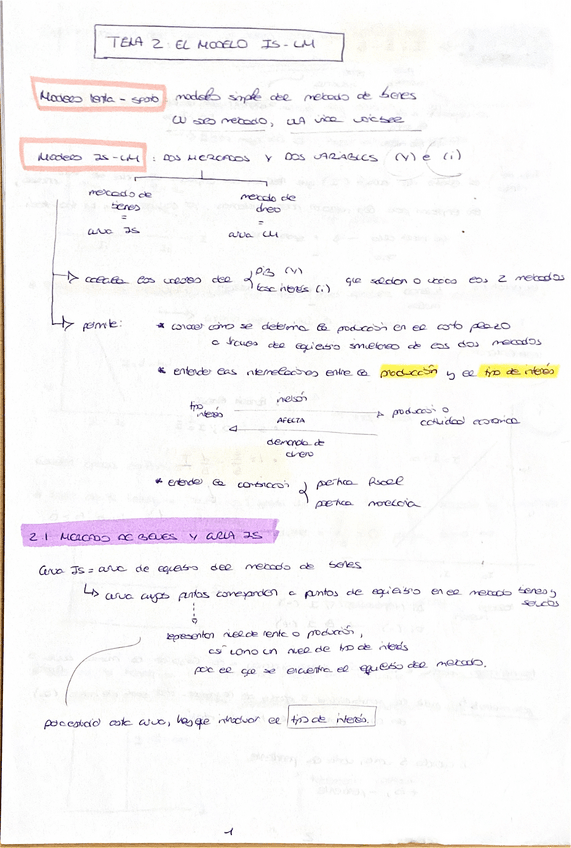 TEMA 2: EL MODELO IS-LM
Modelo renta-gasto: modelo simple del mercado de bienes
un solo mercado, una
MODELO IS-LM: DOS MERCADOS Y DOS VARIABLES (Y) e (i)
mercado de bienes = curva IS
mercado de dinero = curva LM
los valores del PIB (Y)
tasa interés (i)
que a la vez los 2 mercados
permite: * conocer cómo se determina la producción en el corto plazo
a través del equilibrio simultáneo de los dos mercados
* entender las interrelaciones entre la producción y el tipo de interés
tipo interés
inversión
AFECTA
demanda de dinero
producción o actividad económica
* entender la combinación política fiscal
política monetaria
2.1 MERCADO DE BIENES Y CURVA IS
Curva IS = curva de equilibrio del mercado de bienes
curva cuyos puntos corresponden a puntos de equilibrio en el mercado bienes y servicios
representan nivel de renta o producción,
así como un nivel de tipo de interés
por el que se encuentra el equilibrio del mercado.
para estudiar esta curva, hay que introducir el tipo de interés.
1